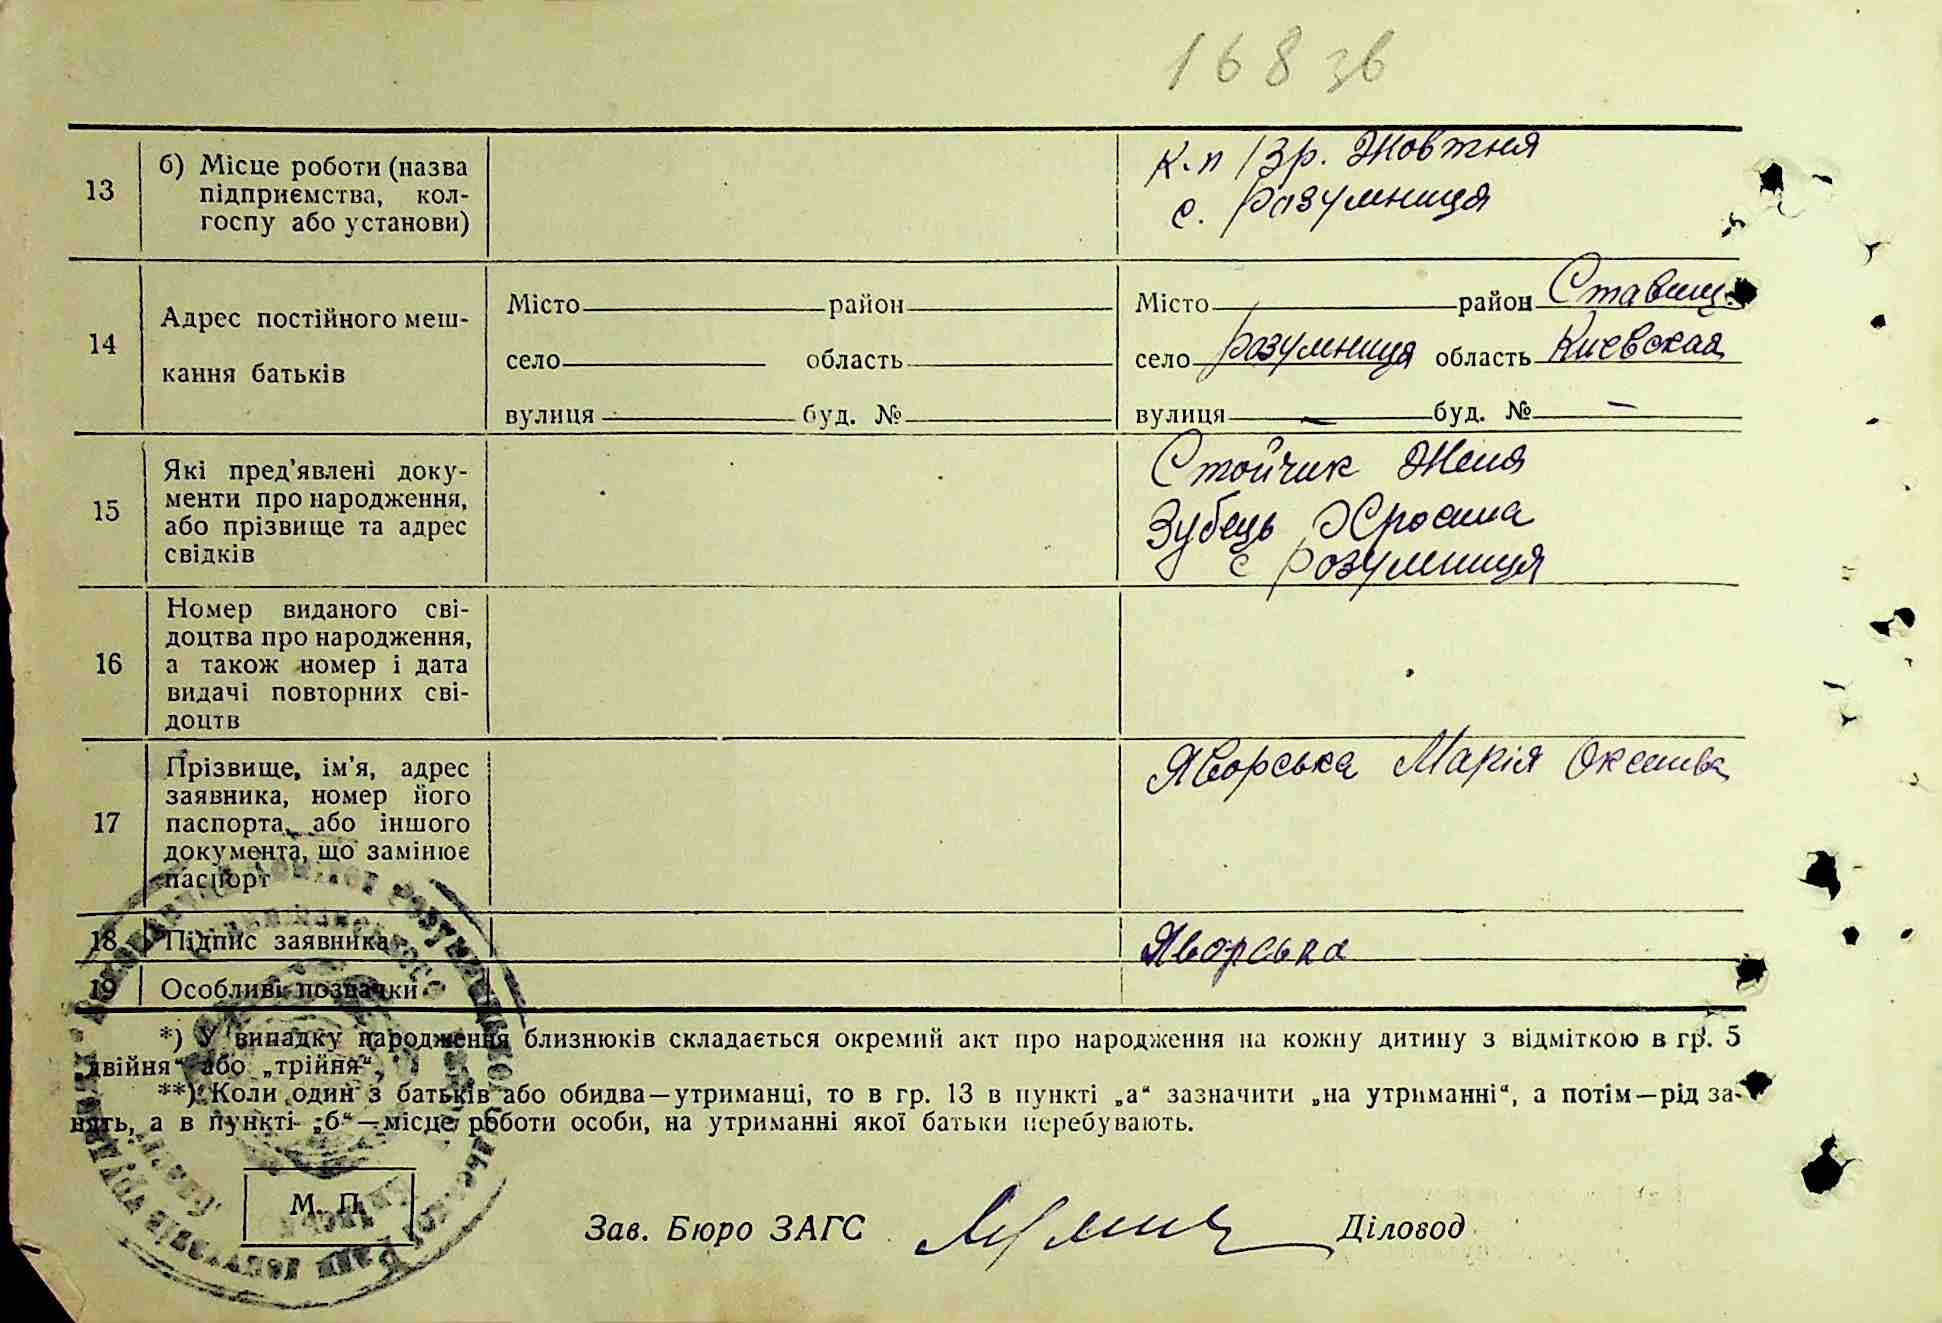 168 зв
13
б) Місце роботи (назва
підприємства, кол-
госпу або установи)
к-п 13 р. Жовтня
с. Розумниця
14
Адрес постійного меш-
кання батьків
Місто район
село область
вулиця буд. №
Місто район Ставищ.
село Розумниця область Киевская
вулиця — буд. № —
15
Які пред'явлені доку-
менти про народження,
або прізвище та адрес
свідків
Стойчик Женя
Зубець
с Розумниця
16
Номер виданого сві-
доцтва про народження,
а також номер і дата
видачі повторних сві-
доцтв
17
Прізвище, ім'я, адрес
заявника, номер його
паспорта, або іншого
документа, що замінює
паспорт
Яворська Марія
18
Підпис заявника
Яворська
19
Особливі позначки
*) У випадку народження близнюків складається окремий акт про народження на кожну дитину з відміткою в гр. 5
„двійня“ або „трійня“.
**) Коли один з батьків або обидва—утриманці, то в гр. 13 в пункті „а“ зазначити „на утриманні“, а потім—рід за-
нять, а в пункті „б“—місце роботи особи, на утриманні якої батьки перебувають.
М. П.
Зав. Бюро ЗАГС
Діловод